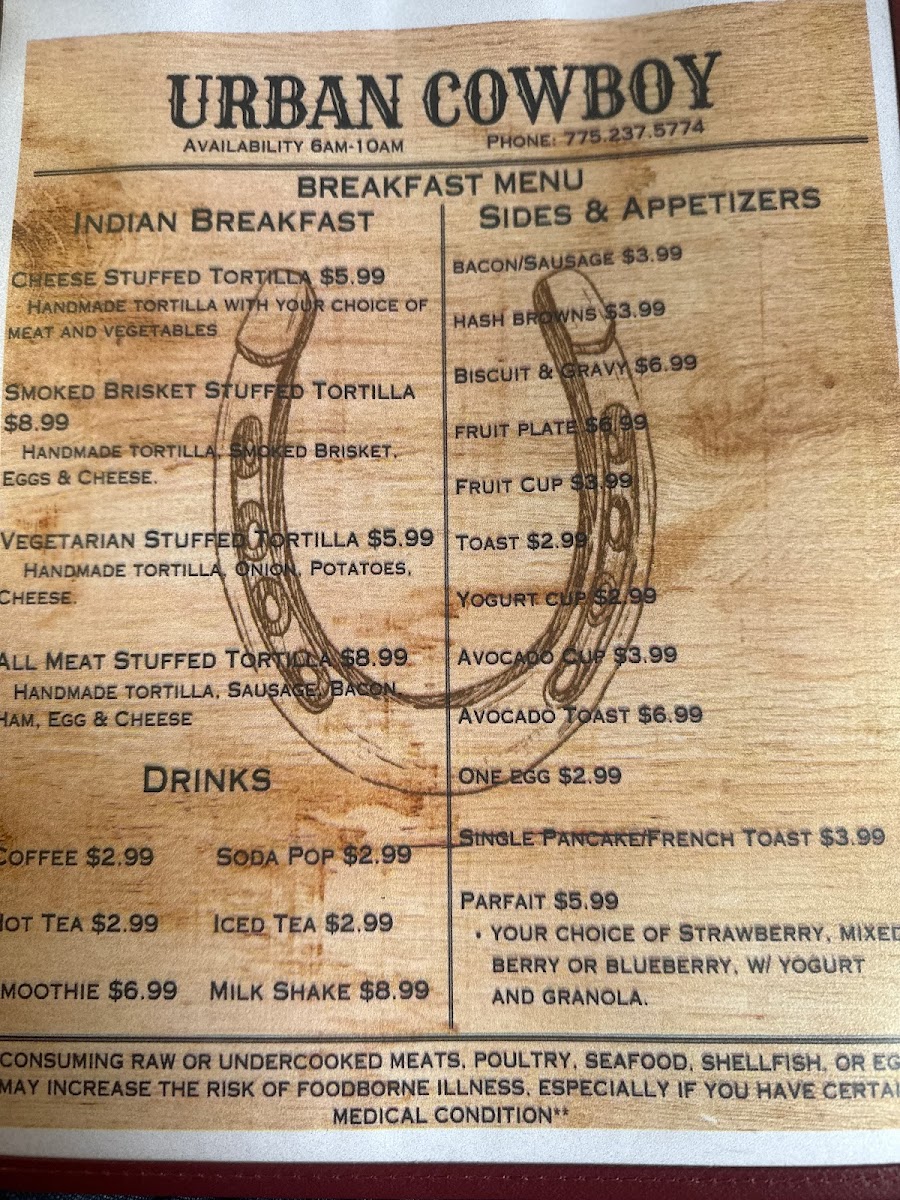 URBAN COWBOY
AVAILABILITY 6AM-10AM
PHONE: 775.237.5774
BREAKFAST MENU
INDIAN BREAKFAST
CHEESE STUFFED TORTILLA $5.99
HANDMADE TORTILLA WITH YOUR CHOICE OF
MEAT AND VEGETABLES
SMOKED BRISKET STUFFED TORTILLA
$8.99
HANDMADE TORTILLA, SMOKED BRISKET,
EGGS & CHEESE.
VEGETARIAN STUFFED TORTILLA $5.99
HANDMADE TORTILLA, ONION, POTATOES,
CHEESE.
ALL MEAT STUFFED TORTILLA $8.99
HANDMADE TORTILLA, SAUSAGE, BACON,
HAM, EGG & CHEESE
DRINKS
COFFEE $2.99
SODA POP $2.99
HOT TEA $2.99
ICED TEA $2.99
SMOOTHIE $6.99
MILK SHAKE $8.99
SIDES & APPETIZERS
BACON/SAUSAGE $3.99
HASH BROWNS $3.99
BISCUIT & GRAVY $6.99
FRUIT PLATE $6.99
FRUIT CUP $3.99
TOAST $2.99
YOGURT CUP $2.99
AVOCADO CUP $3.99
AVOCADO TOAST $6.99
ONE EGG $2.99
SINGLE PANCAKE/FRENCH TOAST $3.99
PARFAIT $5.99
• YOUR CHOICE OF STRAWBERRY, MIXED
BERRY OR BLUEBERRY, W/ YOGURT
AND GRANOLA.
CONSUMING RAW OR UNDERCOOKED MEATS, POULTRY, SEAFOOD, SHELLFISH, OR EG
MAY INCREASE THE RISK OF FOODBORNE ILLNESS, ESPECIALLY IF YOU HAVE CERTAI
MEDICAL CONDITION**